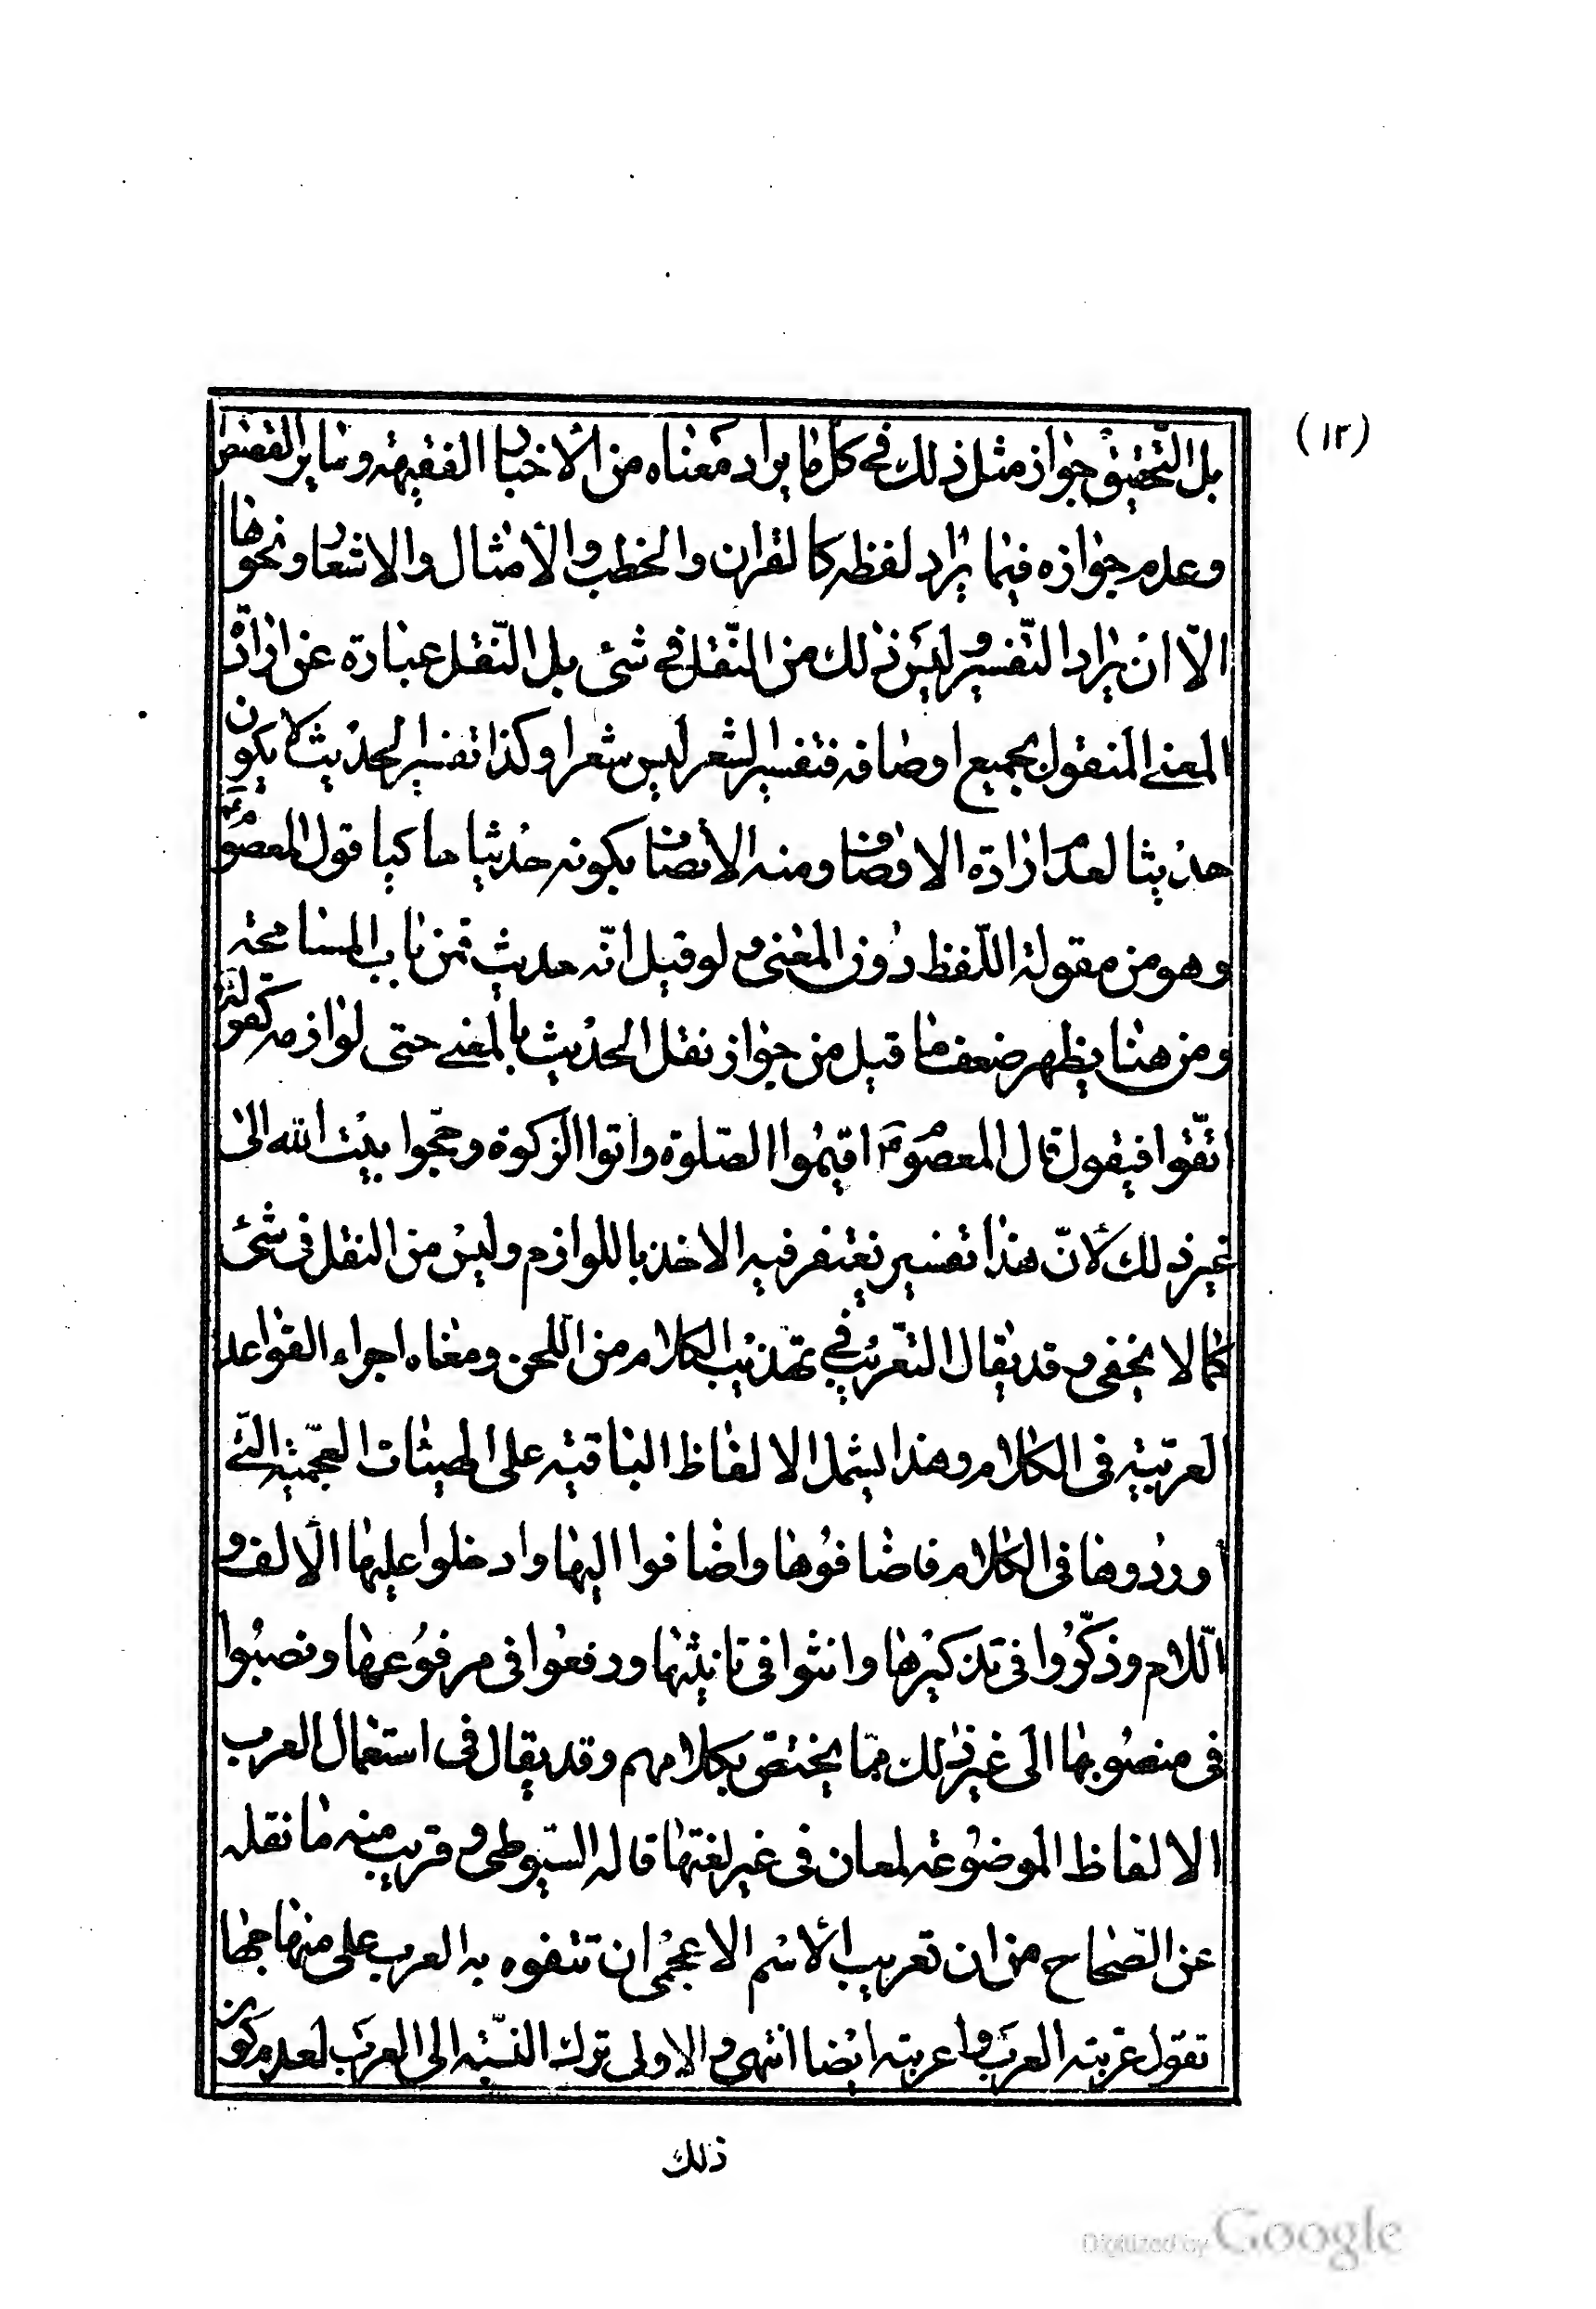 (١٢)
بل التّحقيق جواز مثل ذلك في كلّ ما يراد معناه من الأخبار الفقهية وساير القصص
وعدم جوازه فيما يراد لفظه كالقران والخطب والأمثال والاشعار ونحوها
الّا ان يراد التّفسير وليس ذلك من النّقل في شئ بل النّقل عبارة عن ارادة
المعنى المنقول بجميع اوصافه فتفسير الشعر ليس شعرا وكذا تفسير الحديث لا يكون
حديثا لعدم ارادة الاوصاف ومنه الأتصاف بكونه حديثا حاكيا قول المعصوم
وهو من مقولة اللّفظ دون المعنى ولو قيل انّه حديث فمن باب المسامحة
ومن هنا يظهر ضعف ما قيل من جواز نقل الحديث بالمعنى حتى لوازمه كقوله
اتّقوا فيقول قال المعصوم اقيموا الصّلوة واتوا الزكوة وحجّوا بيت الله الى
غير ذلك لأنّ هذا تفسير يغتفر فيه الاخذ باللوازم وليس من النقل في شئ
كما لا يخفى وقد يقال التّعريب في تهذيب الكلام من اللحن ومعناه اجراء القواعد
العربيّة فى الكلام وهذا يشمل الالفاظ الباقية على الهيئات العجميّة الّتي
اوردوها فى الكلام فاضافوها واضافوا اليها وادخلوا عليها الألف و
اللّام وذكّروا فى تذكيرها وانثوا فى تانيثها ورفعوا فى مرفوعها ونصبوا
فى منصوبها الى غير ذلك ممّا يختصّ بكلامهم وقد يقال فى استعمال العرب
الالفاظ الموضوعة لمعان فى غير لغتها قاله السّيوطى وقريب منه ما نقله
عن الصّحاح من ان تعريب الأسم الاعجمى ان تتفوه به العرب على منهاجها
تقول عرّبته العرب واعربته ايضا انتهى والاولى ترك النّسبة الى العرب لعدم كون
ذلك
Digitized by Google